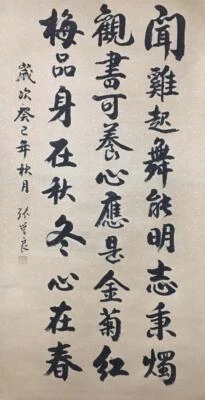 聞雞起舞能明志秉燭
觀書可養心應是金菊紅
梅品身在秋冬心在春
歲次癸巳年秋月 張良